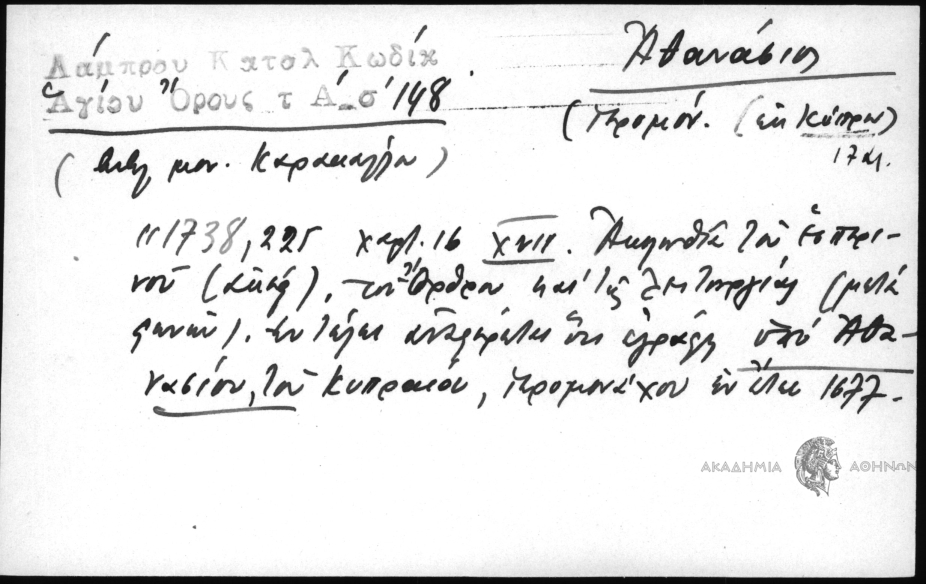 Λάμπρου Κατολ Κωδίκ
Ἁγίου Ὄρους τ Α σ 148
Ἀθανάσιος
(Ἱερομόν. (ἐκ Κύπρου)
17 αἰ.
( μον. Καρακάλλου)
1738, 225 χαρτ. 16 XVII. Ἀκολουθία τοῦ ἑσπερι-
νοῦ (ἀκέφ), τοῦ Ὄρθρου καὶ τῆς λειτουργίας (μετὰ
). Ἐν τέλει ἀναφέρεται ὅτι ἐγράφη ὑπὸ Ἀθα-
νασίου, τοῦ Κυπραίου, Ἱερομονάχου ἐν ἔτει 1677.
ΑΚΑΔΗΜΙΑ ΑΘΗΝΩΝ